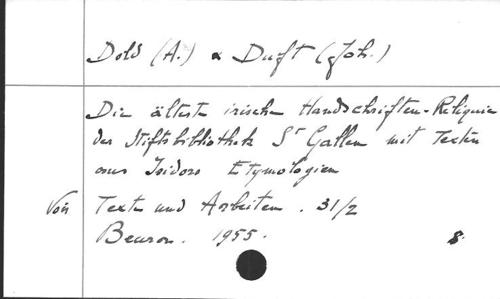 Dold (A.) & Duft (Joh.)
Die älteste irische Handschriften-Reliquie
der Stiftsbibliothek St Gallen mit Texten
aus Isidors Etymologien
Voir Texte und Arbeiten. 31/2
Beuron. 1955. 8.